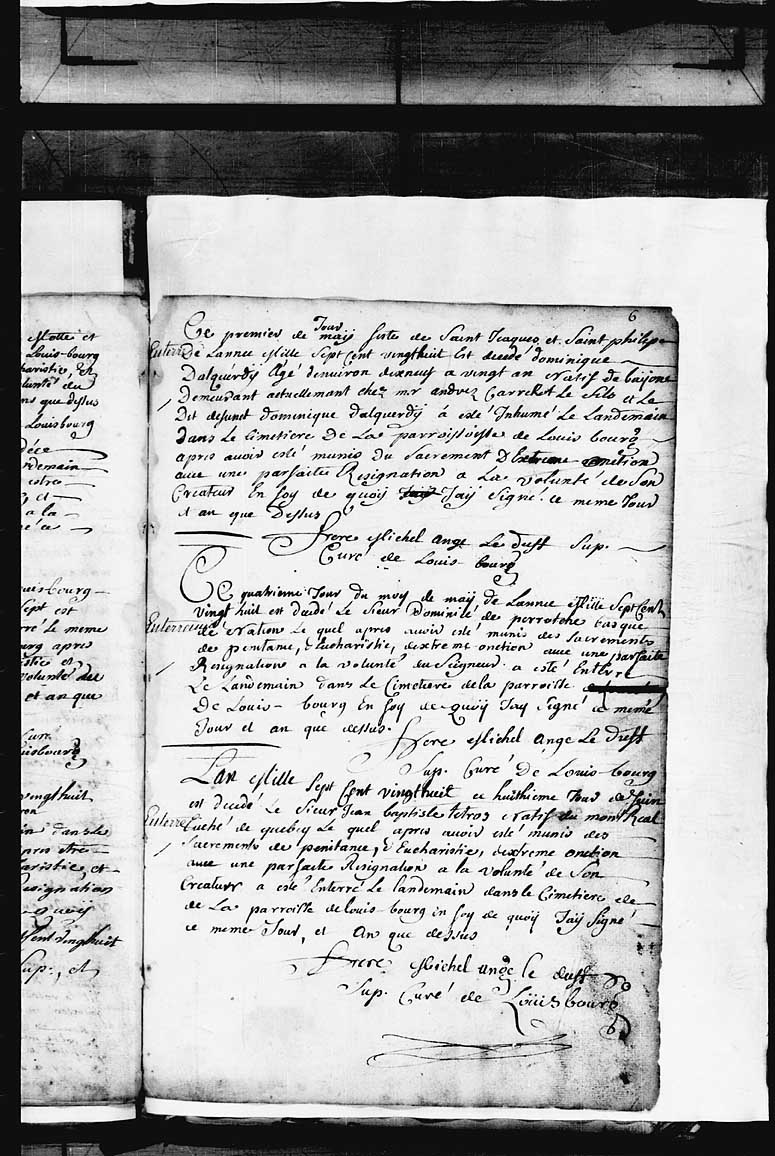 Motte et
Louis-bourg
haristie, Ex
lunté du
ns que dessus
Louisbourg
déce
ndemain
estre
et
a la
uis bourg
Sept est
rré le meme
ourg apres
stie et
volunté de
et an que
Curé
uisbourg
vingt huit
in dans le
apres etre
aristie, et
resignation
quoy
Cent vingt huit
Sup., et
6
Jour
Ce premier de maij feste de Saint Jacques et Saint philipe
Enterré
De Lannee Mille Sept Cent vingthuit Est decedé dominique
Dalquerdij Agé denuiron dixneuf a vingt an Natif de baijone
Demeurant actuellemant chez mr andrez Carreret Le filo et Le
Dit defunct dominique dalquerdij a esté Inhumé Le Landemain
Dans Le Cimetiere De La parroissoisse de Louis bourg
apres avoir esté munis du Sacrement D'Extreme onction
avec une parfaite Resignation a La volunté de Son
Createur En foy de quoij Jaij Signé ce meme Jour
et an que Dessus
frere Michel ange Le duff Sup.
Curé de Louis bourg
Ce quatrieme Jour du mois de maij De Lannee Mille Sept Cent
vingt huit est decedé Le Sieur Dominic de perrotche basque
Enterrement
de Nation Le quel apres avoir esté munis des Sacrements
de penitance, Eucharistie, dextreme onction avec une parfaite
Resignation a la volunté du Seigneur a esté Enterré
Le Landemain dans Le Cimetiere dela parroisse
De Louis-bourg En foy de quoij Jay Signé ce meme
Jour et an que dessus.
frere Michel Ange Le Duff
Sup. Curé De Louis-bourg
Lan Mille Sept Cent vingthuit ce huithieme Jour de Juin
est decedé Le Sieur Jean baptiste tetros Natif du mont Real
Enterré
Euché de quebeq Le quel apres avoir esté munis des
Sacrements de penitance, d'Eucharistie, dextreme onction
avec une parfaite Resignation a la volunté de Son
Createur a esté Enterré Le landemain dans le Cimetiere de
de La parroisse de louis-bourg En foy de quoij Jaij Signé
ce meme Jour, et An que dessus
frere Michel ange le duff
Sup. Curé de Loüisbourg